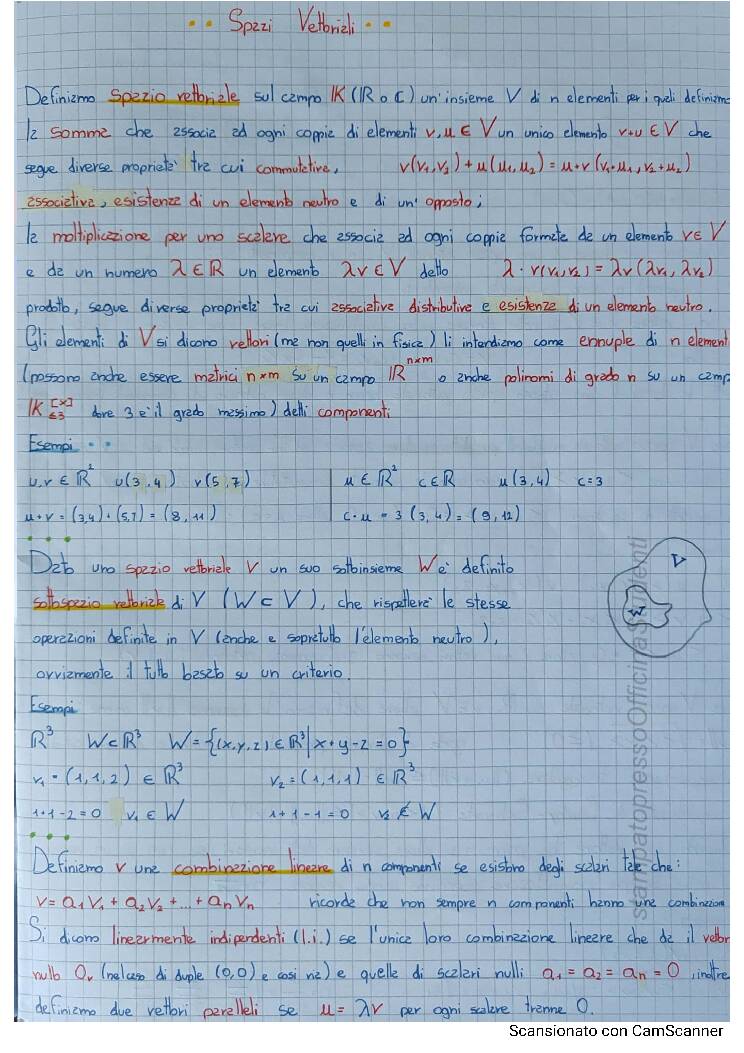 Spazi Vettoriali
Definiamo spazio vettoriale sul campo K (R o C) un'insieme V di n elementi per i quali definiamo
la somma che associa ad ogni coppia di elementi v,u ∈ V un unico elemento v+u ∈ V che
segue diverse proprieta' tra cui commutativa, v(v₁,v₂) + u(u₁,u₂) = u+v (v₁+u₁, v₂+u₂)
associativa, esistenza di un elemento neutro e di un' opposto;
la moltiplicazione per uno scalare che associa ad ogni coppia formata da un elemento v∈V
e da un numero λ∈R un elemento λv∈V detto λ·v(v₁,v₂) = λv(λv₁, λv₂)
prodotto, segue diverse proprieta' tra cui associativa distributiva e esistenza di un elemento neutro.
Gli elementi di V si dicono vettori (ma non quelli in fisica) li intendiamo come ennuple di n element
(possono anche essere matrici n×m su un campo R^(n×m) o anche polinomi di grado n su un camp
K[x]≤3 dove 3 e' il grado massimo) detti componenti
Esempi
u,v ∈ R² u(3,4) v(5,7) u ∈ R² c∈R u(3,4) c=3
u+v = (3,4)+(5,7) = (8,11) c·u = 3(3,4) = (9,12)
Dato uno spazio vettoriale V un suo sottoinsieme W e' definito
sottospazio vettoriale di V (W⊂V), che rispettera' le stesse
operazioni definite in V (anche e sopratutto l'elemento neutro),
ovviamente il tutto basato su un criterio.
V
W
Esempi
R³ W⊂R³ W={(x,y,z)∈R³|x+y-z=0}
v₁=(1,1,2) ∈ R³ v₂=(1,1,1) ∈ R³
1+1-2=0 v₁∈W 1+1-1=0 v₂∉W
Definiamo v una combinazione lineare di n componenti se esistono degli scalari tale che:
v=a₁v₁+a₂v₂+...+aₙvₙ ricorda che non sempre n componenti hanno una combinazion
Si dicono linearmente indipendenti (l.i.) se l'unica loro combinazione lineare che da il vettor
nullo 0ᵥ (nel caso di duple (0,0) e cosi via) e quella di scalari nulli a₁=a₂=aₙ=0, inoltre
definiamo due vettori paralleli se u=λv per ogni scalare tranne 0.
stampatopressoOfficinaStudenti
Scansionato con CamScanner